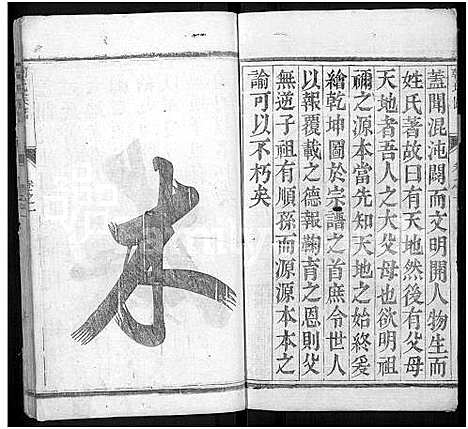 蓋聞混沌闢而文明開人物生而
姓氏著故曰有天地然後有父母
天地者吾人之大父母也欲明祖
禰之源本當先知天地之始終爰
繪乾坤圖於宗譜之首庶令世人
以報覆載之德報鞠育之恩則父
無逆子祖有順孫而源源本本之
諭可以不朽矣
本